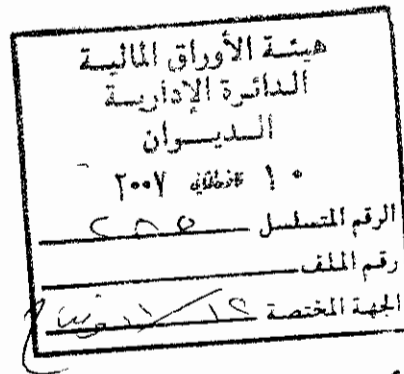 هيئة الأوراق المالية
الدائرة الإدارية
الديوان
١٠ ٢٠٠٧
الرقم المتسلسل ٢٨٥
رقم الملف
الجهة المختصة